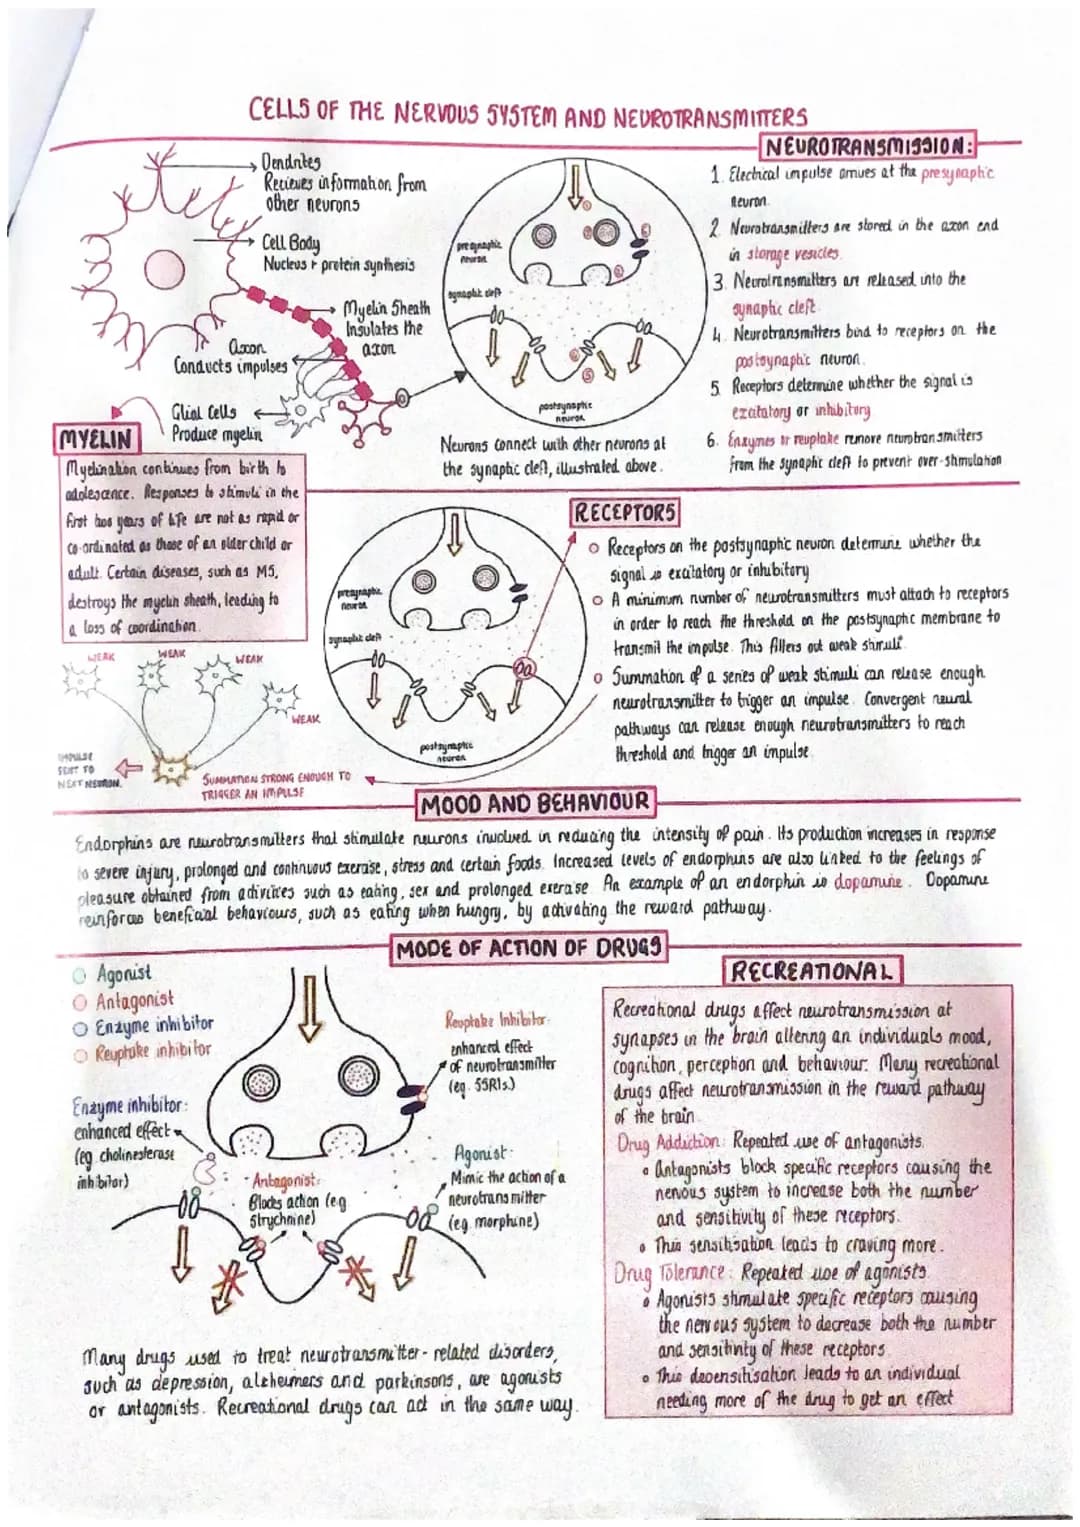 CELLS OF THE NERVOUS SYSTEM AND NEUROTRANSMITTERS
Dendrites
Recieves information from
other neurons
Cell Body
Nucleus + protein synthesis
Myelin Sheath
Insulates the
axon
Axon
Conducts impulses
Glial Cells
Produce myelin
presynaptic
neuron
synaptic cleft
postsynaptic
neuron
1
2
3
4
5
6
Neurons connect with other neurons at
the synaptic cleft, illustrated above.
NEUROTRANSMISSION:
1. Electrical impulse arrives at the presynaptic
neuron.
2. Neurotransmitters are stored in the axon end
in storage vesicles.
3. Neurotransmitters are released into the
synaptic cleft.
4. Neurotransmitters bind to receptors on the
postsynaptic neuron.
5. Receptors determine whether the signal is
excitatory or inhibitory
6. Enzymes or reuptake remove neurotransmitters
from the synaptic cleft to prevent over-stimulation
MYELIN
Myelination continues from birth to
adolescence. Responses to stimuli in the
first two years of life are not as rapid or
co-ordinated as those of an older child or
adult. Certain diseases, such as MS,
destroys the myelin sheath, leading to
a loss of coordination.
WEAK
WEAK
WEAK
WEAK
IMPULSE
SENT TO
NEXT NEURON.
SUMMATION STRONG ENOUGH TO
TRIGGER AN IMPULSE
presynaptic
neuron
synaptic cleft
postsynaptic
neuron
RECEPTORS
Receptors on the postsynaptic neuron determine whether the
signal is excitatory or inhibitory
A minimum number of neurotransmitters must attach to receptors
in order to reach the threshold on the postsynaptic membrane to
transmit the impulse. This filters out weak stimuli.
Summation of a series of weak stimuli can release enough
neurotransmitter to trigger an impulse. Convergent neural
pathways can release enough neurotransmitters to reach
threshold and trigger an impulse.
MOOD AND BEHAVIOUR
Endorphins are neurotransmitters that stimulate neurons involved in reducing the intensity of pain. Its production increases in response
to severe injury, prolonged and continuous exercise, stress and certain foods. Increased levels of endorphins are also linked to the feelings of
pleasure obtained from activities such as eating, sex and prolonged exercise. An example of an endorphin is dopamine. Dopamine
reinforces beneficial behaviours, such as eating when hungry, by activating the reward pathway.
MODE OF ACTION OF DRUGS
Agonist
Antagonist
Enzyme inhibitor
Reuptake inhibitor
Enzyme inhibitor:
enhanced effect
(eg. cholinesterase
inhibitor)
Antagonist:
Blocks action (e.g
strychnine)
Reuptake Inhibitor:
enhanced effect
of neurotransmitter
(eg. SSRIs.)
Agonist:
Mimic the action of a
neurotransmitter
(eg. morphine)
Many drugs used to treat neurotransmitter-related disorders,
such as depression, alzheimers and parkinsons, are agonists
or antagonists. Recreational drugs can act in the same way.
RECREATIONAL
Recreational drugs affect neurotransmission at
synapses in the brain altering an individuals mood,
cognition, perception and behaviour. Many recreational
drugs affect neurotransmission in the reward pathway
of the brain.
Drug Addiction: Repeated use of antagonists.
Antagonists block specific receptors causing the
nervous system to increase both the number
and sensitivity of these receptors.
This sensitisation leads to craving more.
Drug Tolerance: Repeated use of agonists
Agonists stimulate specific receptors causing
the nervous system to decrease both the number
and sensitivity of these receptors
This desensitisation leads to an individual
needing more of the drug to get an effect